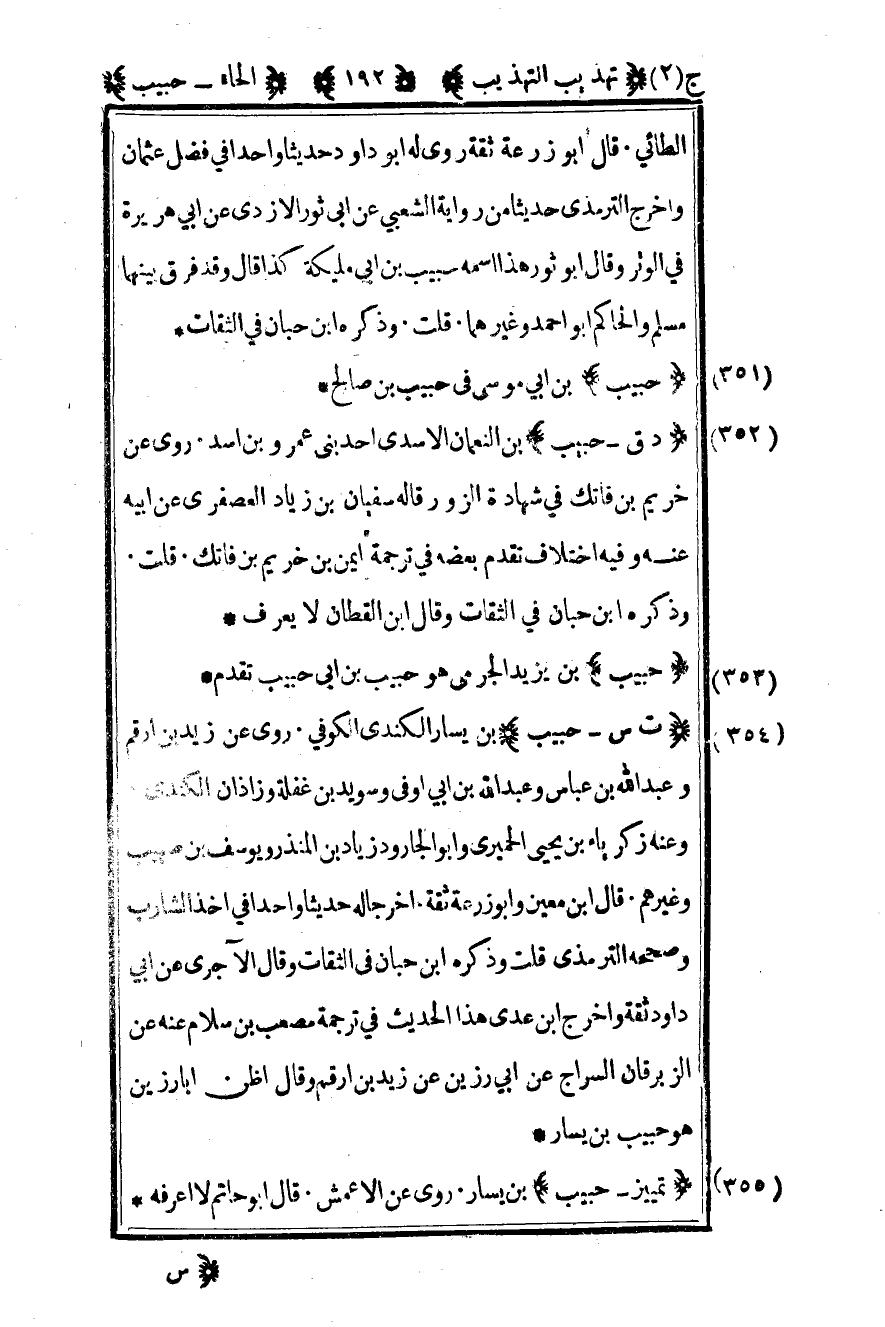 ج(٢) ﴿ تهذيب التهذيب ﴾ ﴿ ١٩٢ ﴾ ﴿ الحاء ـ حبيب ﴾
الطائي · قال ابو زرعة ثقة روى له ابو داود حديثا واحدا في فضل عثمان
واخرج الترمذى حديثا من رواية الشعبي عن ابى ثور الازدى عن ابي هريرة
في الوتر وقال ابو ثور هذا اسمه سبيب بن ابي مليكة كذا قال وقد فرق بينهما
مسلم والحاكم ابو احمد وغيرهما · قلت · وذكره ابن حبان في الثقات *
(٣٥١) ﴿ حبيب ﴾ بن ابي موسى فى حبيب بن صالح *
(٣٥٢) ﴿ د ق ـ حبيب ﴾ بن النعمان الاسدى احد بنى عمرو بن اسد · روى عن
خريم بن فاتك في شهادة الزور قاله سفيان بن زياد العصفرى عن ابيه
عنه وفيه اختلاف تقدم بعضه في ترجمة أيمن بن خريم بن فاتك · قلت ·
وذكره ابن حبان في الثقات وقال ابن القطان لا يعرف *
(٣٥٣) ﴿ حبيب ﴾ بن يزيد الجرمى هو حبيب بن ابى حبيب تقدم *
(٣٥٤) ﴿ ت س ـ حبيب ﴾ بن يسار الكندى الكوفي · روى عن زيد بن ارقم
وعبد الله بن عباس وعبد الله بن ابي اوفى وسويد بن غفلة وزاذان الكندى ·
وعنه زكرياء بن يحيى الحميرى وابو الجارود زياد بن المنذر ويوسف بن صهيب
وغيرهم · قال ابن معين وابو زرعة ثقة · اخرجا له حديثا واحدا في اخذ الشارب
وصححه الترمذى قلت وذكره ابن حبان فى الثقات وقال الآجرى عن ابي
داود ثقة واخرج ابن عدى هذا الحديث في ترجمة مصعب بن سلام عنه عن
الزبرقان السراج عن ابي رزين عن زيد بن ارقم وقال اظن ابا رزين
هو حبيب بن يسار *
(٣٥٥) ﴿ تمييز ـ حبيب ﴾ بن يسار · روى عن الاعمش · قال ابو حاتم لا اعرفه *
﴿ س